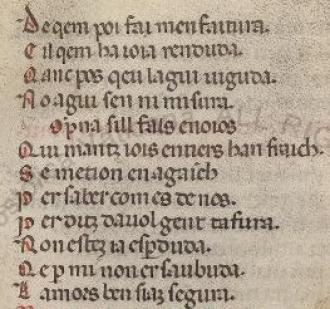 De qem poi fai men faitura.
Cil qem ha ioia renduda.
Qanc pos qeu lagui uiguda.
No agui sen ni misura.
Oprna sill fals enoios
Qui maintz iois entiers han fraich.
Se metion en agaich
Per saber com es de nos.
Per ditz dauol gent tafura.
Non estez ia esperduda.
Ne p mi non er saubuda.
Lamors ben siaz segura.